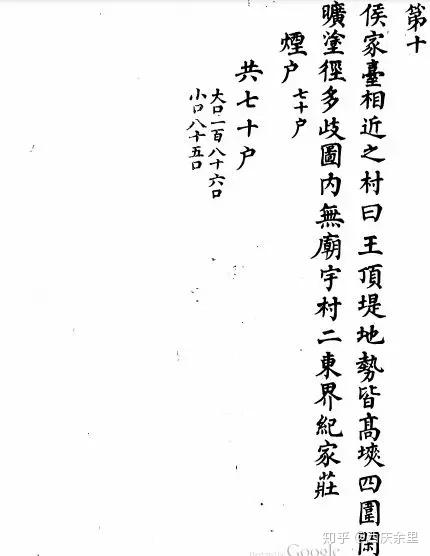 第十
侯家臺相近之村曰王頂堤地勢皆高塽四圍閑
曠塗徑多歧圖内無廟宇村二東界紀家莊
煙户
七十户
共七十户
大口一百八十六口
小口八十五口
知乎 @西庆余里
Google